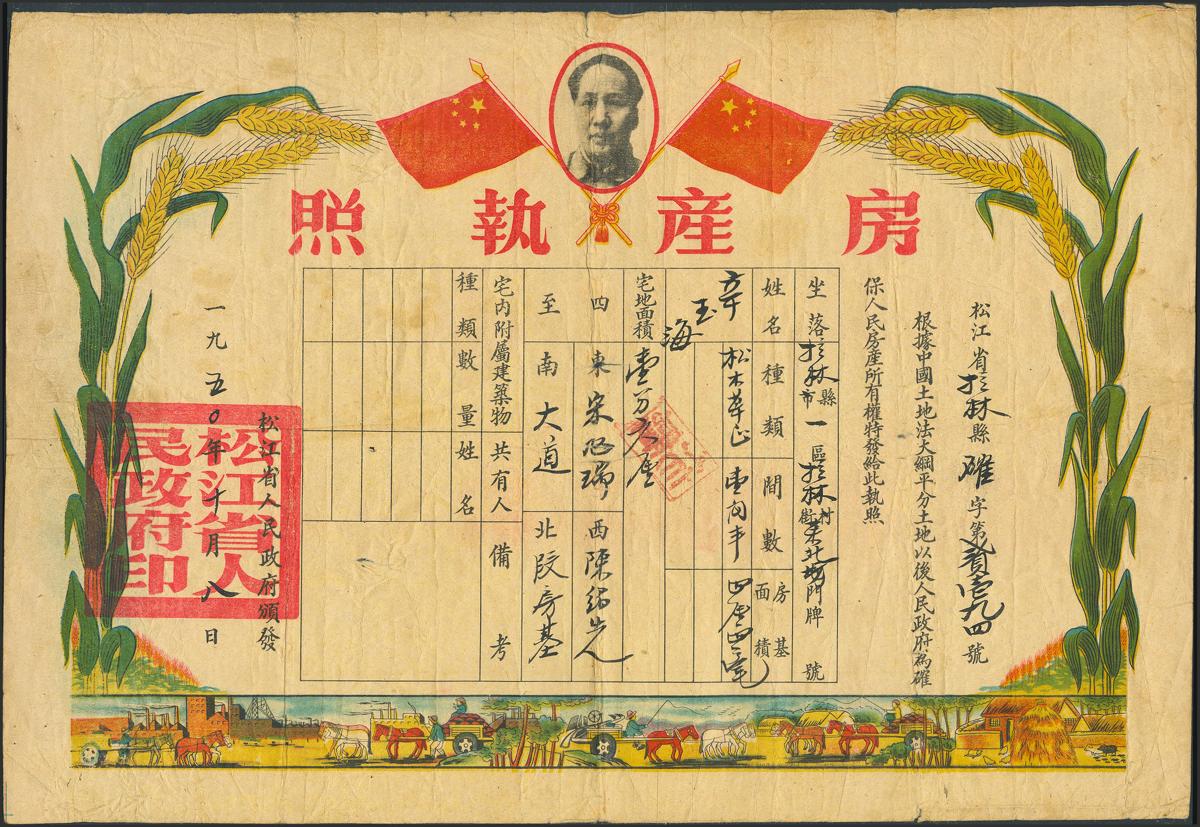 房產執照
松江省拉林縣確字第貳壹九四號
根據中國土地法大綱平分土地以後人民政府為確
保人民房產所有權特發給此執照
坐落拉林縣市一區拉林村街 門牌 號
姓名
種類
間數
房基面積
玉海
松木草正
壹間半
宅地面積
壹分
四至
東宋 瑞
西陳
南大道
北段房基
宅內附屬建築物
種類
數量
共有人
姓名
備考
松江省人民政府頒發
一九五0年十月八日
松江省人民政府印